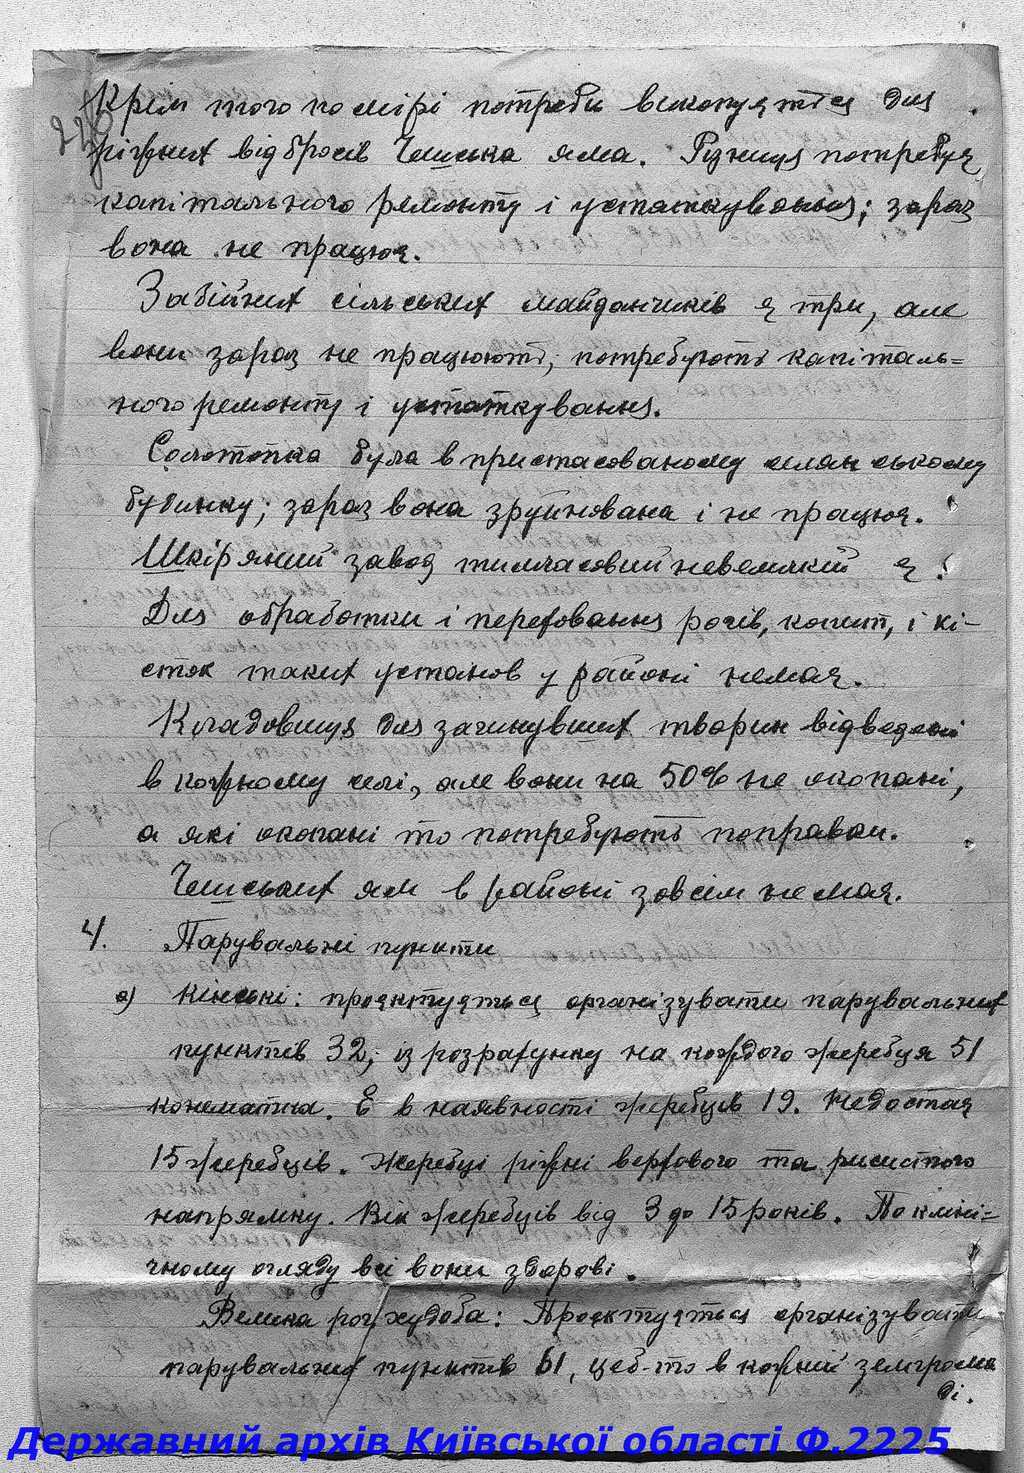 Крім того по мірі потреби викопується для
226
ріжних відбросів Чешська яма. Різниця потребує
капітального ремонту і устаткування; зараз
вона не працює.
Забійних сільських майданчиків є три, але
вони зараз не працюють, потребують капіталь=
ного ремонту і устаткування.
Салотопка була в пристасованому селянському
будинку; зараз вона зруйнована і не працює.
Шкіряний завод тимчасовий невеличкий є.
Для обработки і переховання рогів, копит, і кі-
сток таких установ у районі немає.
Кладовища для загинувших тварин відведені
в кожному селі, але вони на 50% не окопані,
а які окопані то потребують поправки.
Чешських ям в районі зовсім немає.
4. Парувальні пункти
а) Кінські: проєктується організувати парувальних
пунктів 32, із розрахунку на кождого жеребця 51
конематка. Є в наявності жеребців 19. Недостає
15 жеребців. Жеребці ріжні верхового та рисистого
напрямку. Вік жеребців від 3 до 15 років. По кліні=
чному огляду всі вони здорові.
Велика рог. худоба: Проєктується організувати
парувальних пунктів 61, цеб-то в кожній земгрома
ді.
Державний архів Київської області Ф.2225